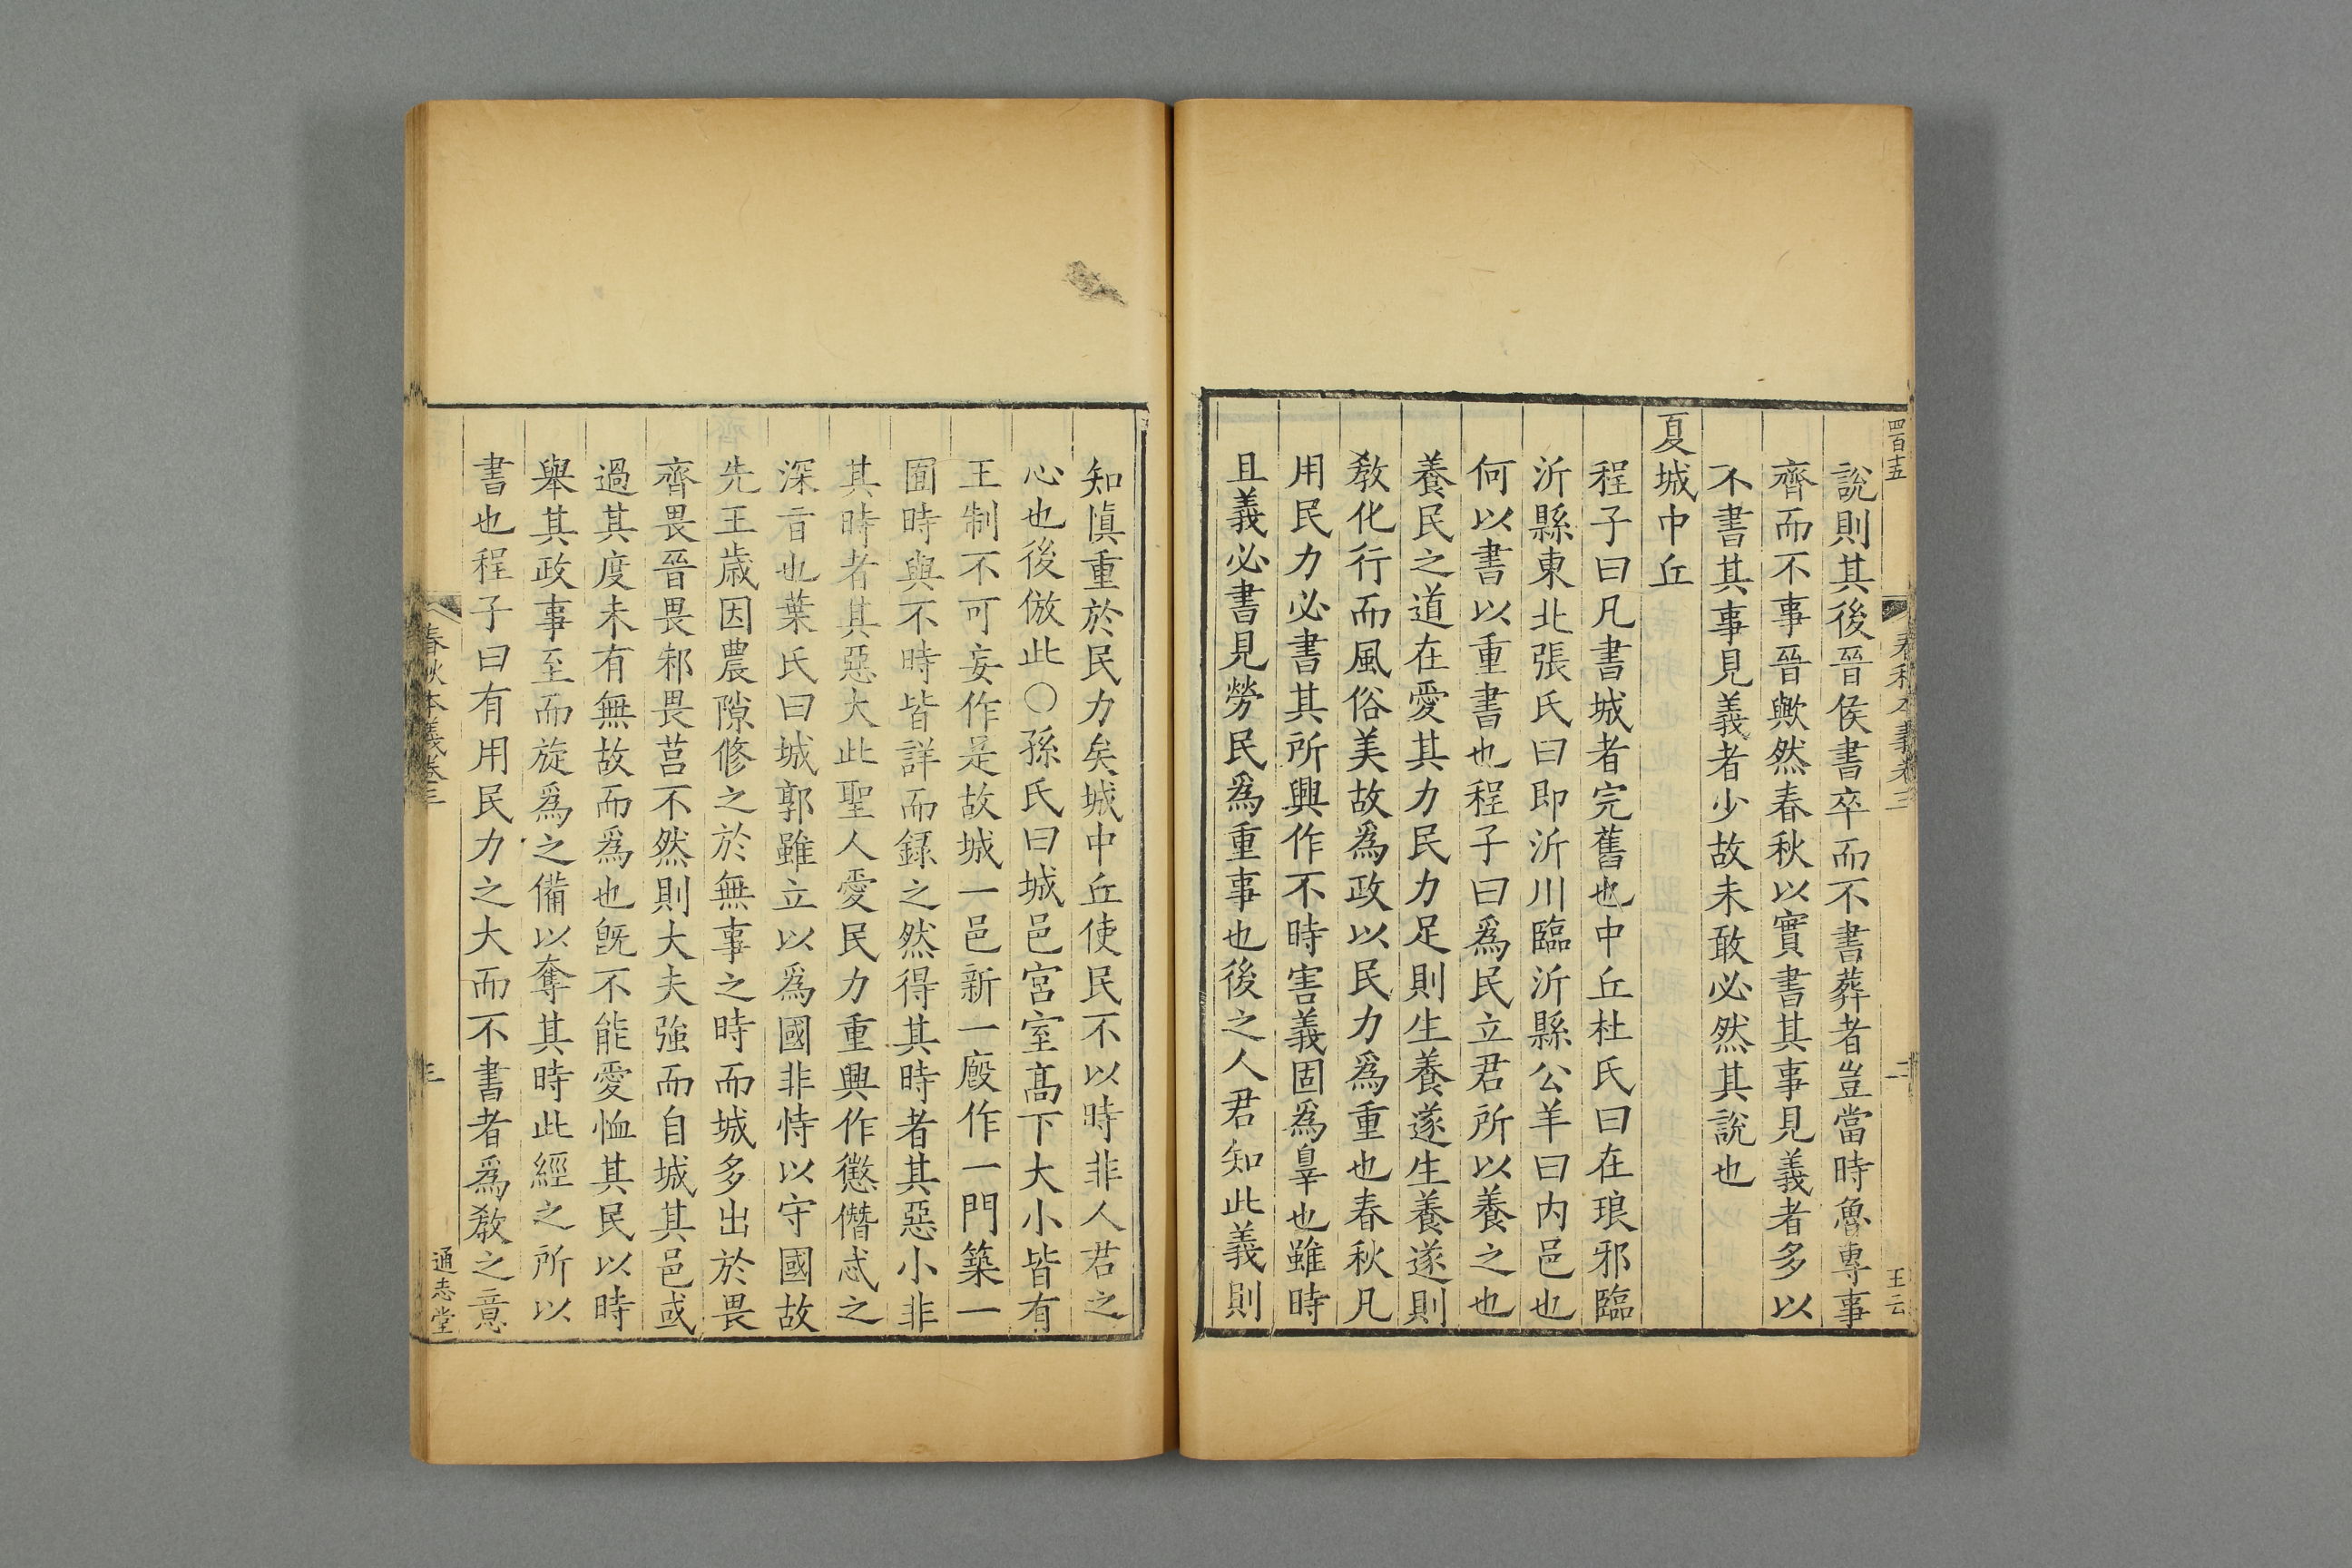 四百十五
春秋本義卷三
二
王云
說則其後晉侯書卒而不書葬者豈當時魯專事
齊而不事晉歟然春秋以實書其事見義者多以
不書其事見義者少故未敢必然其說也
夏城中丘
程子曰凡書城者完舊也中丘杜氏曰在琅邪臨
沂縣東北張氏曰即沂川臨沂縣公羊曰内邑也
何以書以重書也程子曰爲民立君所以養之也
養民之道在愛其力民力足則生養遂生養遂則
敎化行而風俗美故爲政以民力爲重也春秋凡
用民力必書其所興作不時害義固爲辠也雖時
且義必書見勞民爲重事也後之人君知此義則
知慎重於民力矣城中丘使民不以時非人君之
心也後倣此○孫氏曰城邑宮室高下大小皆有
王制不可妄作是故城一邑新一廄作一門築一
囿時與不時皆詳而錄之然得其時者其惡小非
其時者其惡大此聖人愛民力重興作懲僭忒之
深旨也葉氏曰城郭雖立以爲國非恃以守國故
先王歲因農隙修之於無事之時而城多出於畏
齊畏晉畏邾畏莒不然則大夫強而自城其邑或
過其度未有無故而爲也旣不能愛恤其民以時
舉其政事至而旋爲之備以奪其時此經之所以
書也程子曰有用民力之大而不書者爲敎之意
春秋本義卷三
三
通志堂